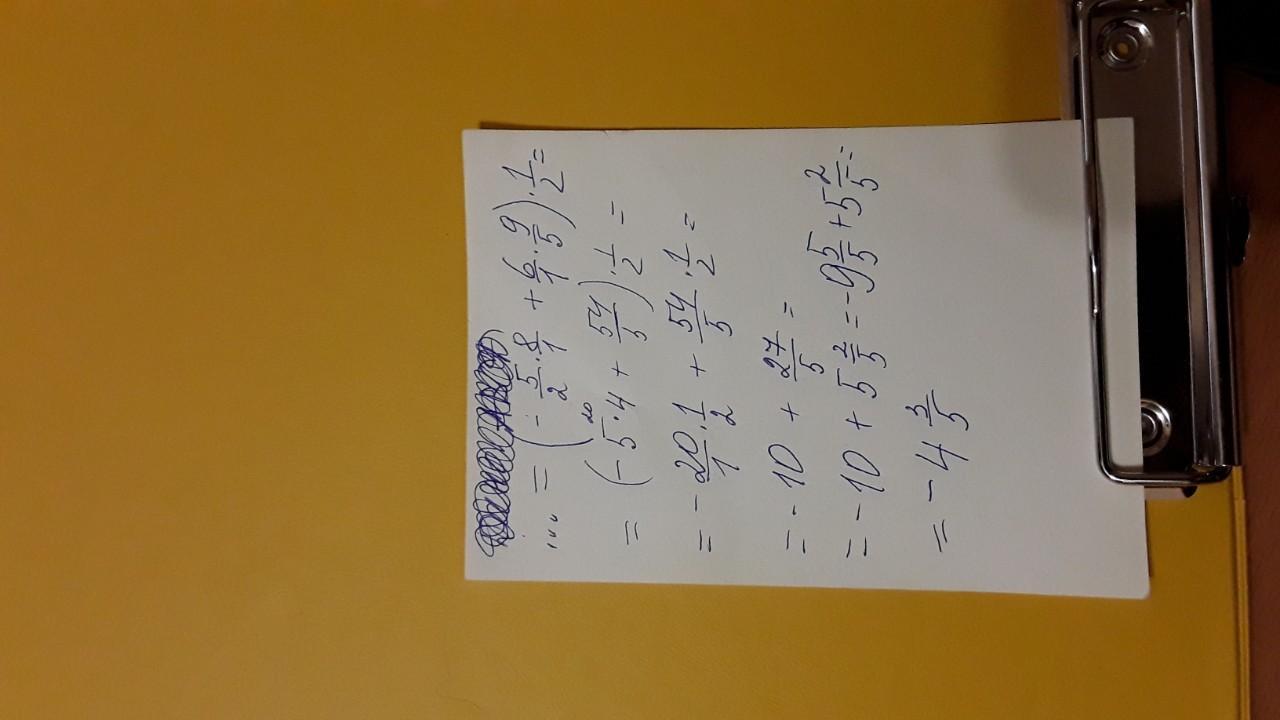 ... = (- 5/2 · 8/1 + 6/1 · 9/5) · 1/2 =
20
= (- 5 · 4 + 54/5) · 1/2 =
= - 20/1 · 1/2 + 54/5 · 1/2 =
= - 10 + 27/5 =
= - 10 + 5 2/5 = - 9 5/5 + 5 2/5 =
= - 4 3/5